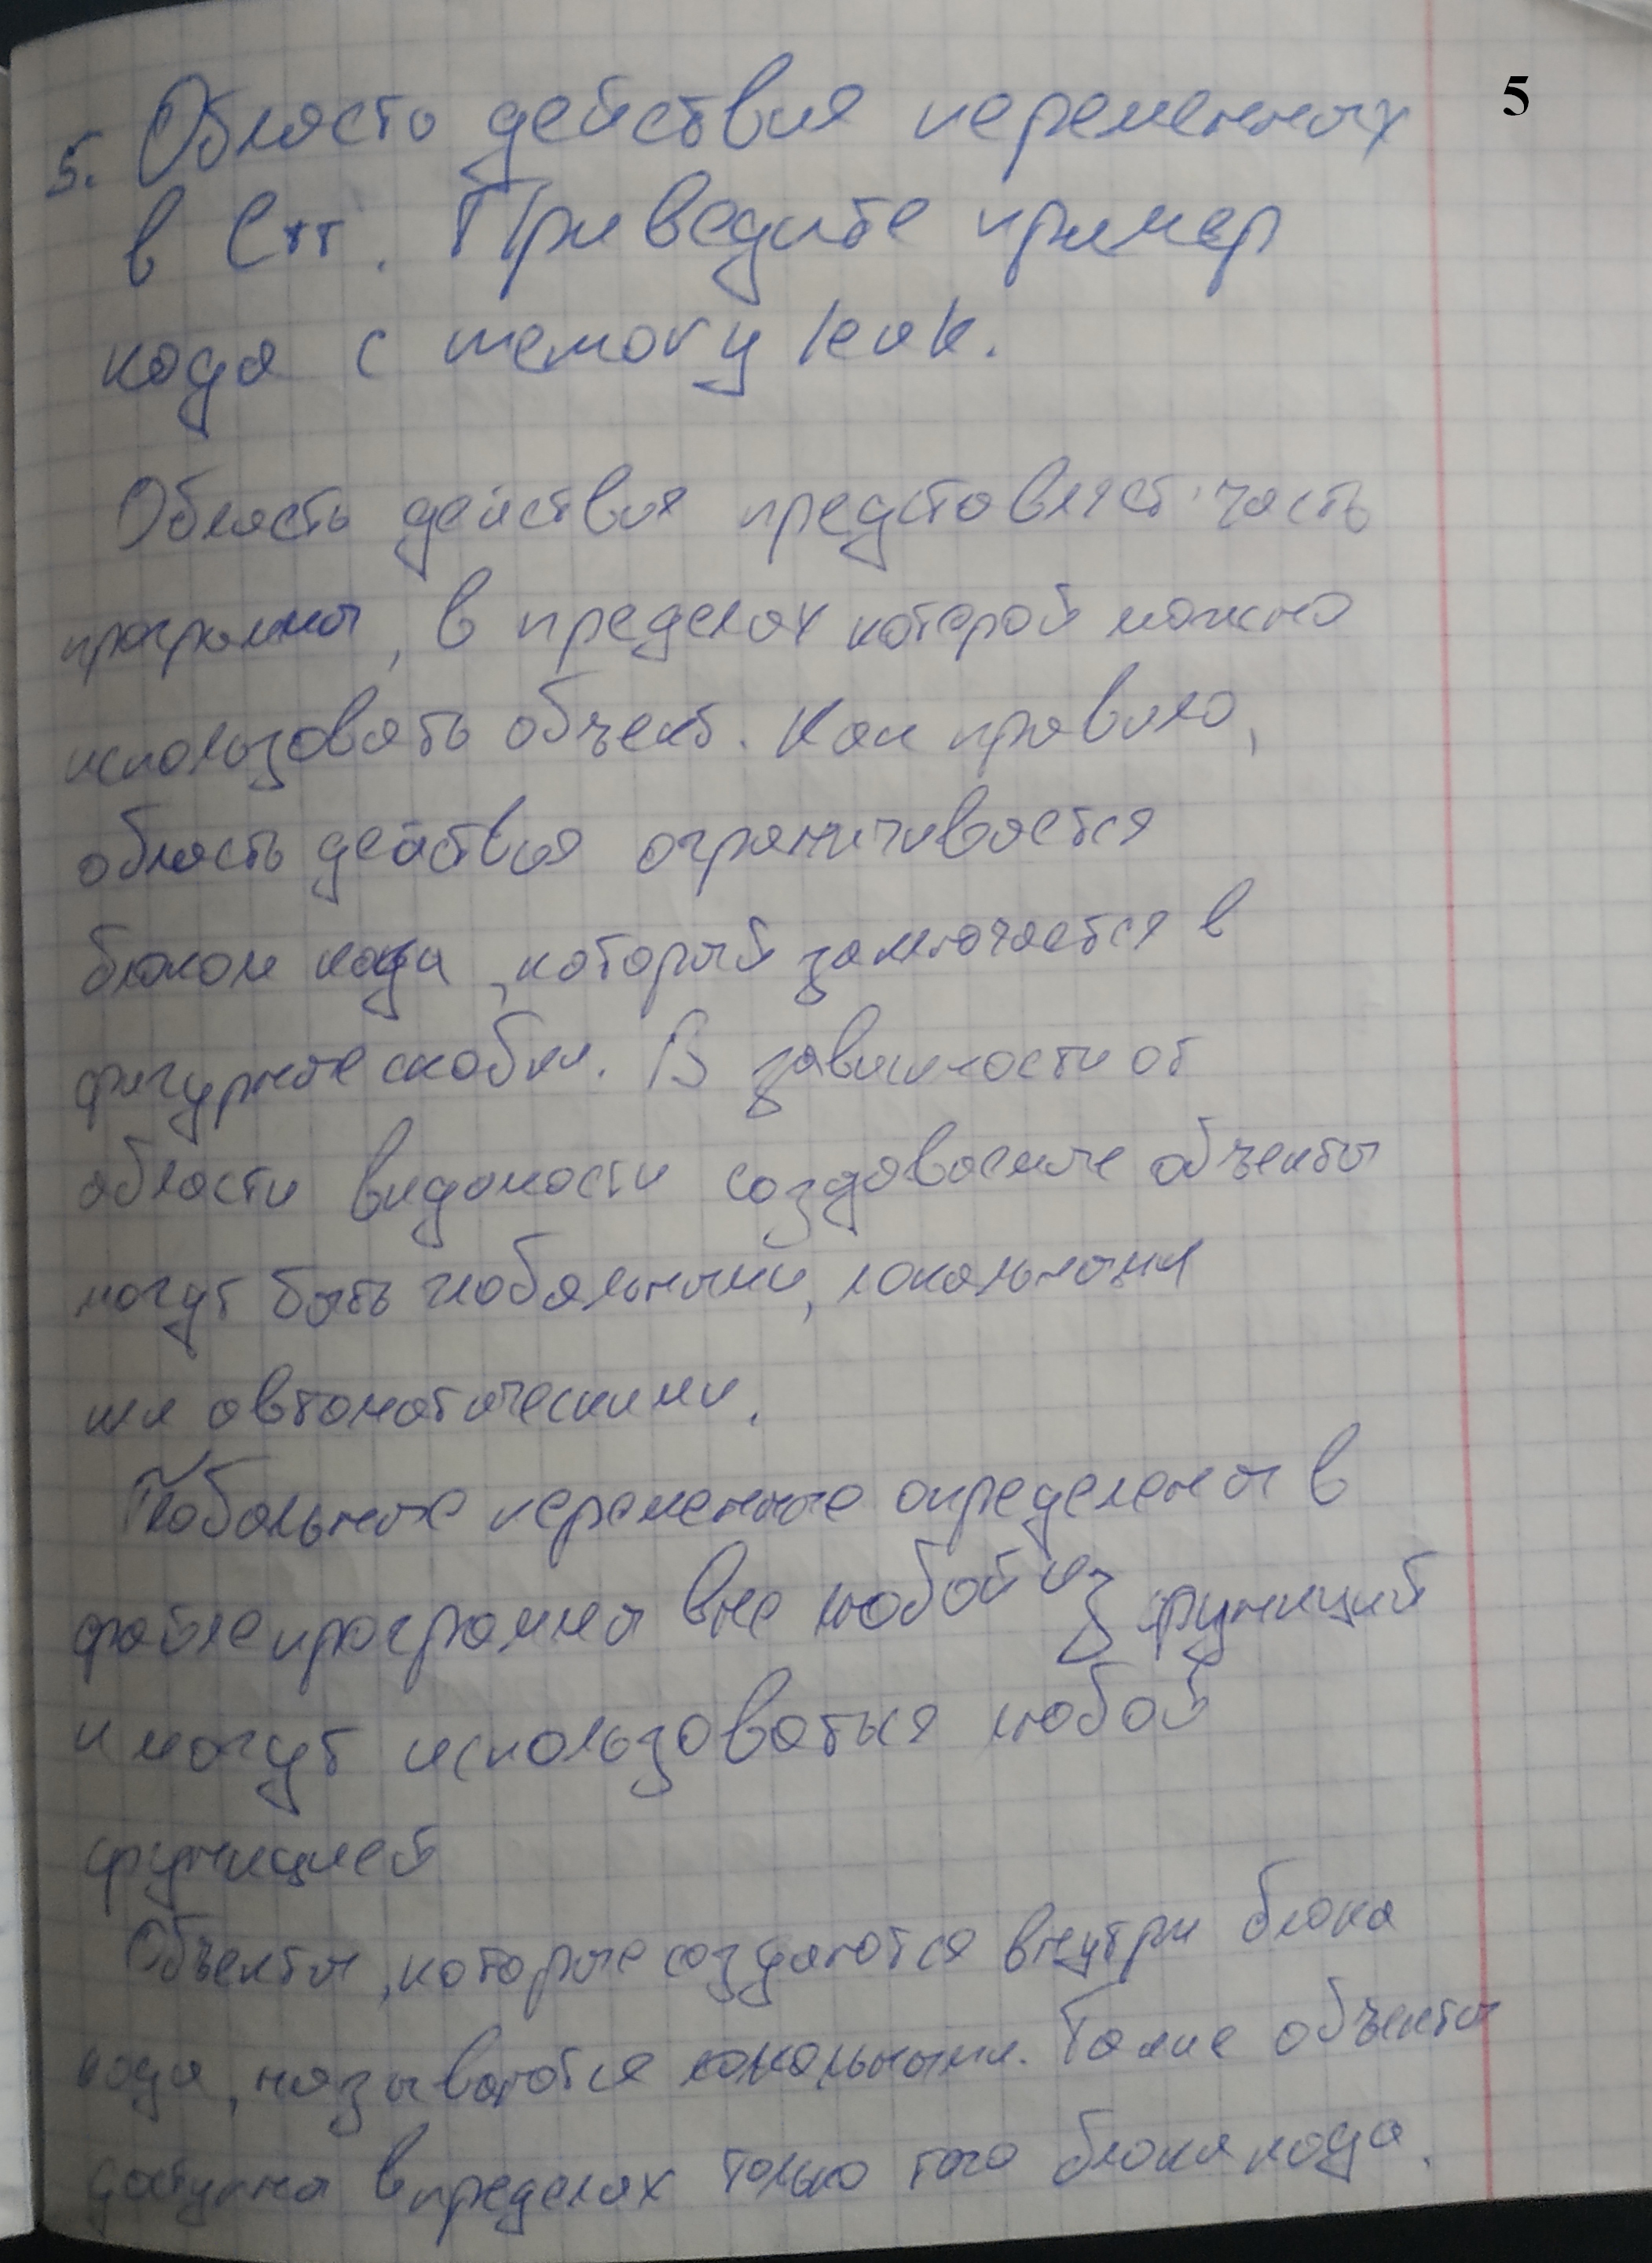 5
5. Область действия переменных
в C++. Приведите пример
кода с memory leak.
Область действия представляет часть
программы, в пределах которой можно
использовать объект. Как правило,
область действия ограничивается
блоком кода, который заключается в
фигурные скобки. В зависимости от
области видимости создаваемые объекты
могут быть глобальными, локальными
или автоматическими.
Глобальные переменные определены в
файле программы вне любой из функций
и могут использоваться любой
функцией
Объекты, которые создаются внутри блока
кода, называются локальными. Такие объекты
доступны в пределах только того блока кода.